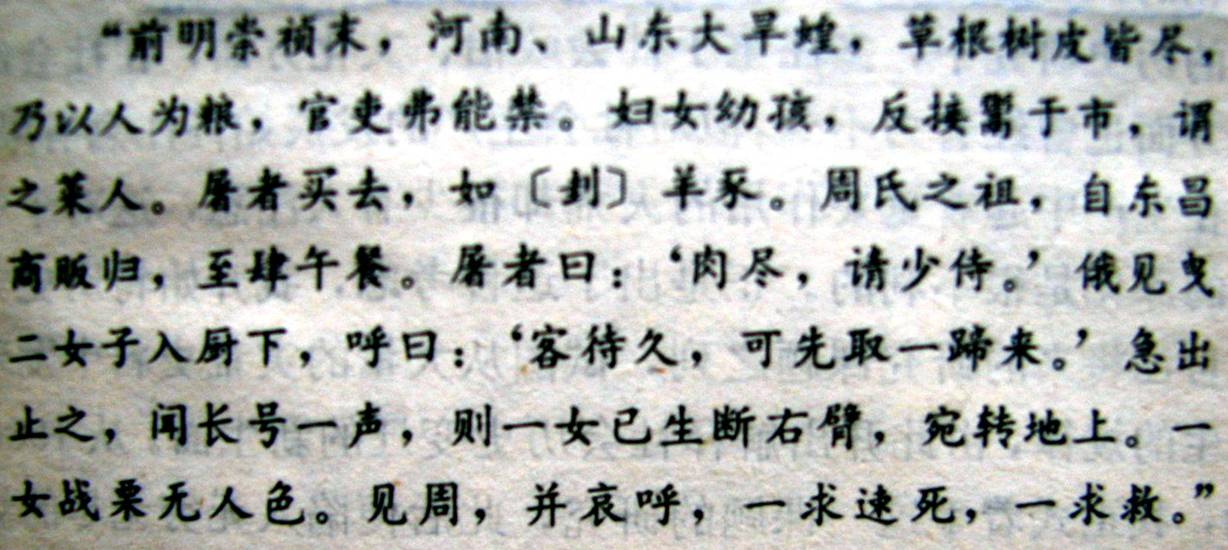 “前明崇祯末，河南、山东大旱蝗，草根树皮皆尽，
乃以人为粮，官吏弗能禁。妇女幼孩，反接鬻于市，谓
之菜人。屠者买去，如〔刲〕羊豕。周氏之祖，自东昌
商贩归，至肆午餐。屠者曰：‘肉尽，请少待。’俄见曳
二女子入厨下，呼曰：‘客待久，可先取一蹄来。’急出
止之，闻长号一声，则一女已生断右臂，宛转地上。一
女战栗无人色。见周，并哀呼，一求速死，一求救。”